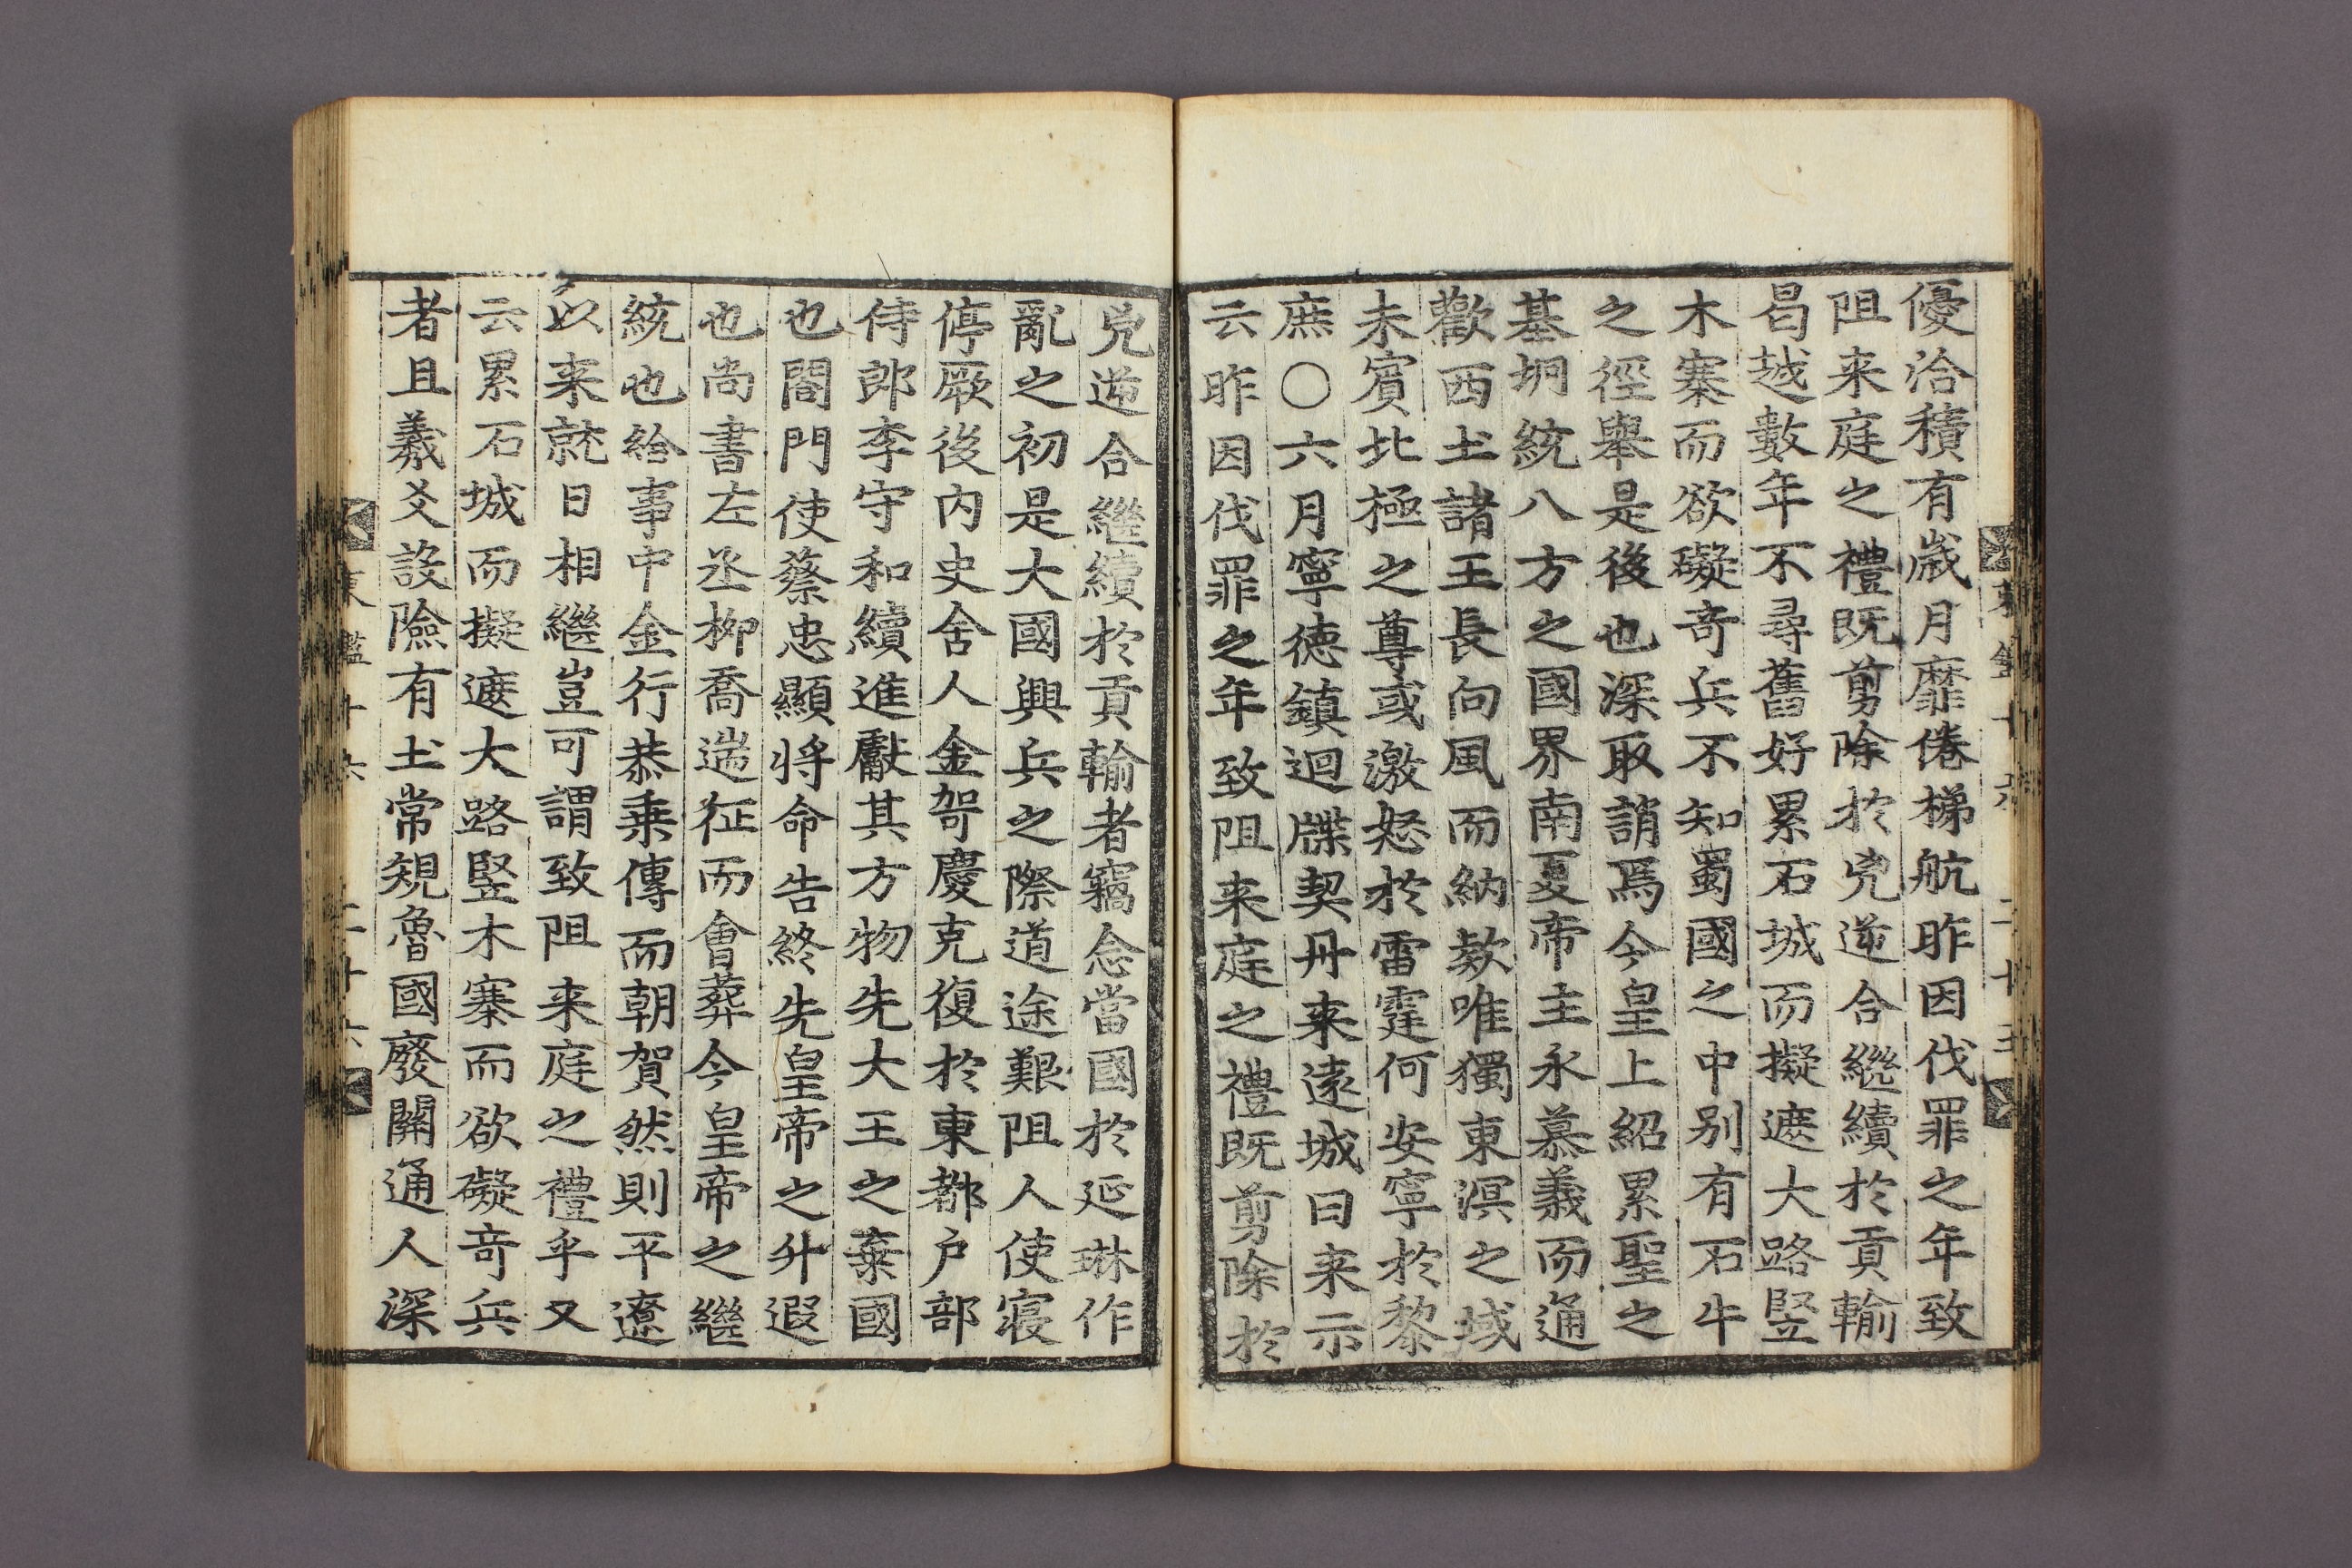 優洽積有歲月靡倦梯航昨因伐罪之年致
阻来庭之禮既剪除於兇逆合繼續於貢輸
曷越數年不尋舊好累石城而擬遮大路竪
木寨而欲礙竒兵不知蜀國之中別有石牛
之徑舉是後也深取誚焉今皇上紹累聖之
基坰統八方之國界南夏帝主永慕義而通
歡西土諸王長向風而納欵唯獨東溟之域
未賓北極之尊或激怒於雷霆何安寧於黎
庶〇六月寧德鎮迴牒契丹来遠城曰来示
云昨因伐罪之年致阻来庭之禮既剪除於
兇逆合繼續於貢輸者竊念當國於延琳作
亂之初是大國興兵之際道途艱阻人使寢
停厥後内史舍人金哿慶克復於東都户部
侍郎李守和續進獻其方物先大王之棄國
也閤門使蔡忠顯將命告終先皇帝之升遐
也尚書左丞柳喬遄征而會葬今皇帝之繼
統也給事中金行恭乗傳而朝賀然則平遼
以来就日相繼豈可謂致阻来庭之禮乎又
云累石城而擬遮大路竪木寨而欲礙竒兵
者且羲爻設險有土常䂓魯國廢關通人深
東鑑十六 二十六